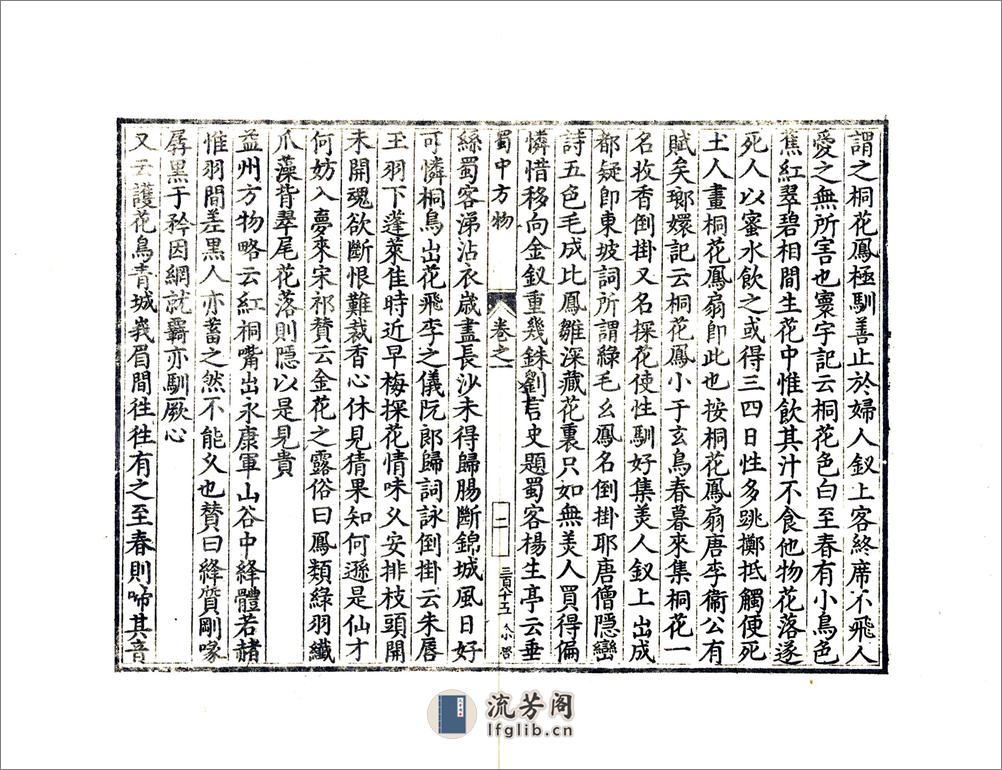 謂之桐花鳳極馴善止於婦人釵上客終席不飛人
愛之無所害也寰宇記云桐花色白至春有小鳥色
蕉紅翠碧相間生花中惟飲其汁不食他物花落遂
死人以蜜水飲之或得三四日性多跳擲抵觸便死
土人畫桐花鳳扇卽此也按桐花鳳扇唐李衞公有
賦矣瑯嬛記云桐花鳳小于玄鳥春暮來集桐花一
名收香倒掛又名探花使性馴好集美人釵上出成
都疑卽東坡詞所謂綠毛幺鳳名倒掛耶唐僧隱巒
詩五色毛成比鳳雛深藏花裏只如無美人買得偏
憐惜移向金釵重幾銖劉言史題蜀客楊生亭云垂
蜀中方物
卷之一
二
三百八十五
絲蜀客涕沾衣歲盡長沙未得歸腸斷錦城風日好
可憐桐鳥出花飛李之儀阮郎歸詞詠倒掛云朱唇
玉羽下蓬萊佳時近早梅探花情味乂安排枝頭開
未開魂欲斷恨難裁香心休見猜果知何遜是仙才
何妨入夢來宋祁贊云金花之露俗曰鳳類綠羽纖
爪藻背翠尾花落則隱以是見貴
益州方物略云紅桐嘴出永康軍山谷中絳體若赭
惟羽間差黑人亦蓄之然不能乂也贊曰絳質剛喙
孱黑于矜因網就羈亦馴厥心
又云護花鳥青城峩眉間往往有之至春則啼其音
流芳阁
lfglib.cn